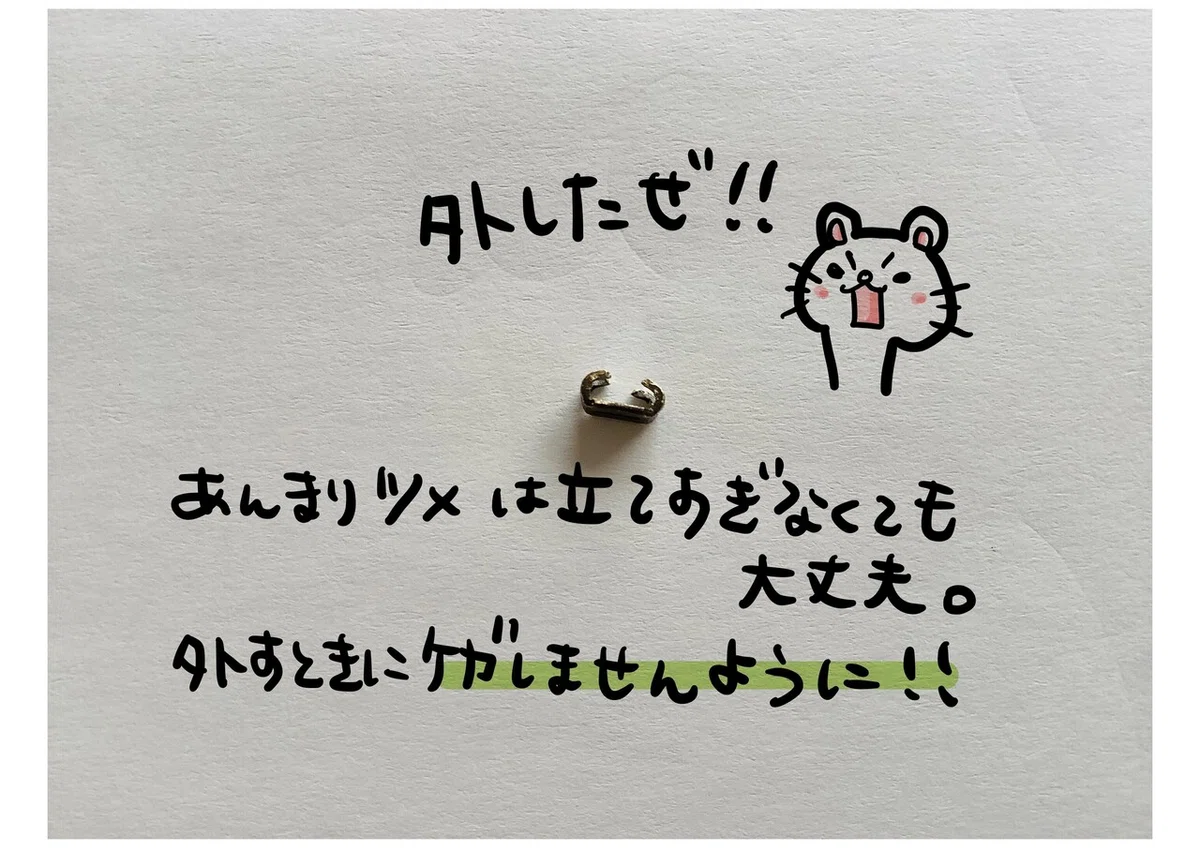 外したぜ!!
あんまりツメは立てすぎなくても
大丈夫。
外すときにケガしませんように!!